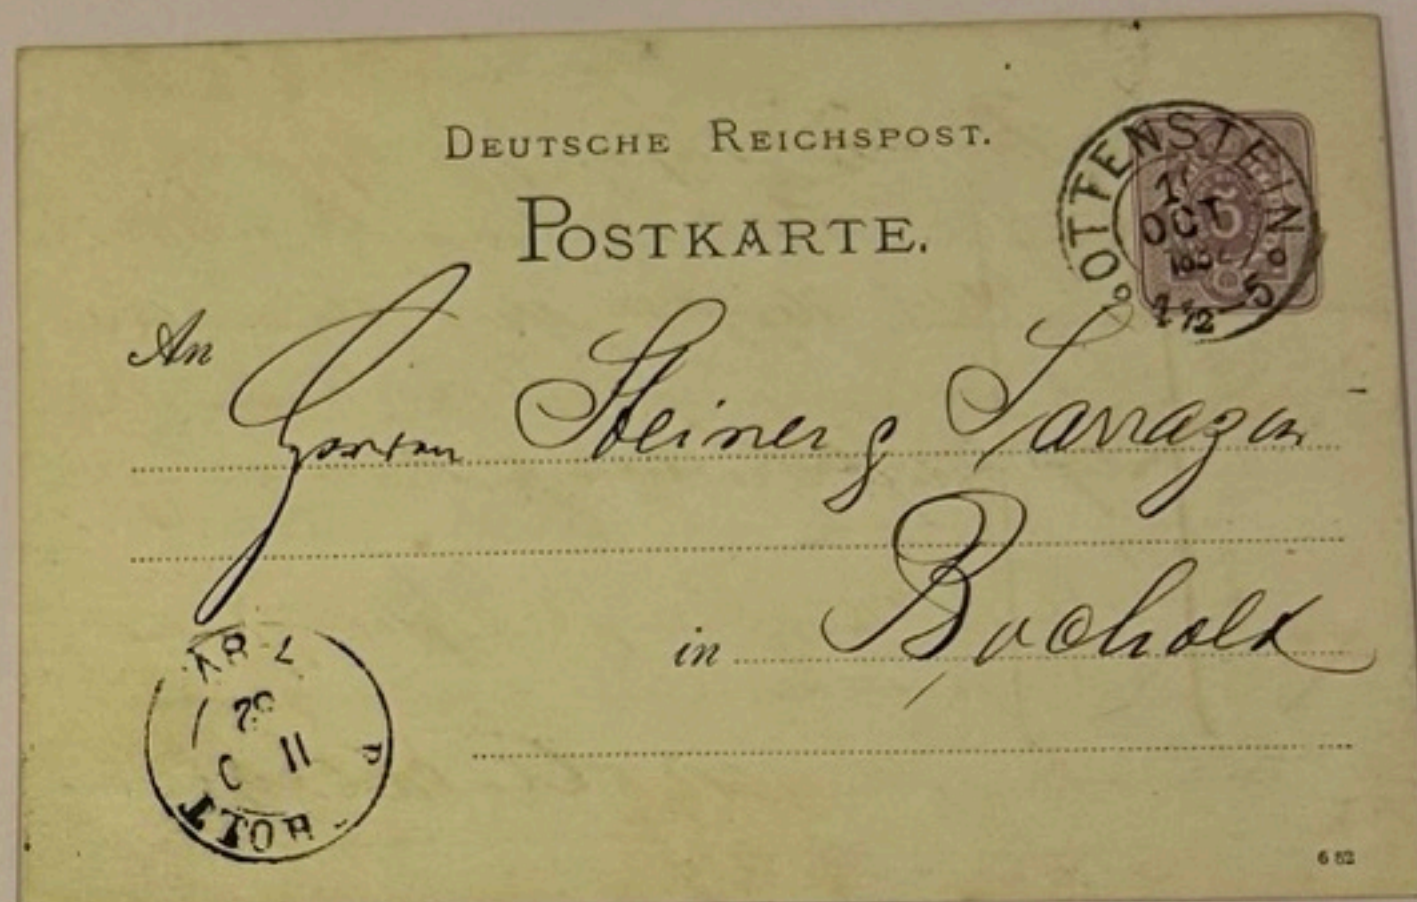 DEUTSCHE REICHSPOST.
POSTKARTE.
OTTENSTEIN
OCT
5
An
Herren Steiner & Sarrazin
in Bocholt
82
11
HOLT
6 82